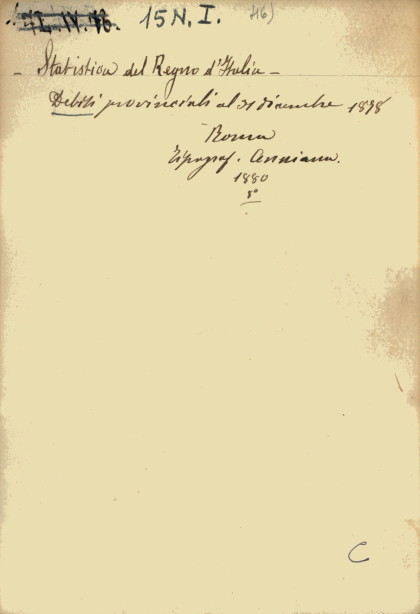 15 N. I. 46)
- Statistica del Regno d'Italia -
Debiti provinciali al 31 dicembre 1878
Roma
Tipograf. Cenniniana.
1880
8°
C